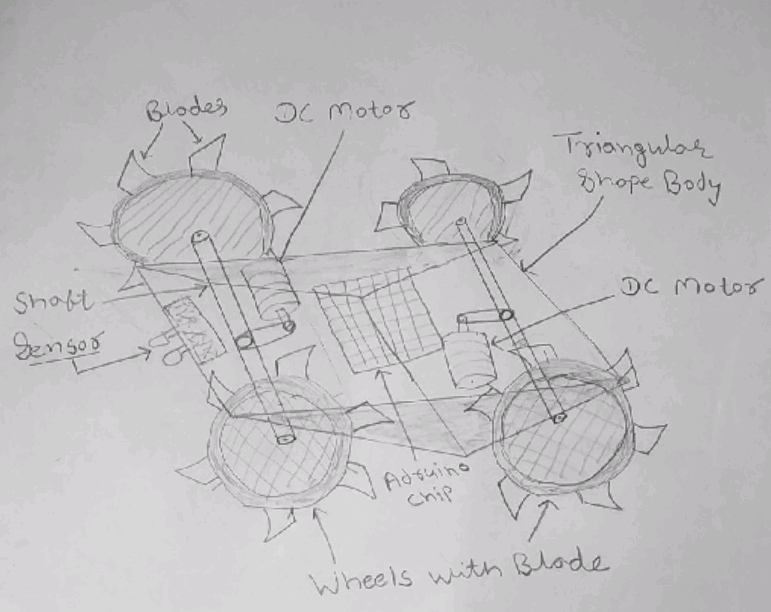 Blades
DC Motor
Triangular
Shape Body
Shaft
DC Motor
Sensor
Adruino
chip
Wheels with Blade